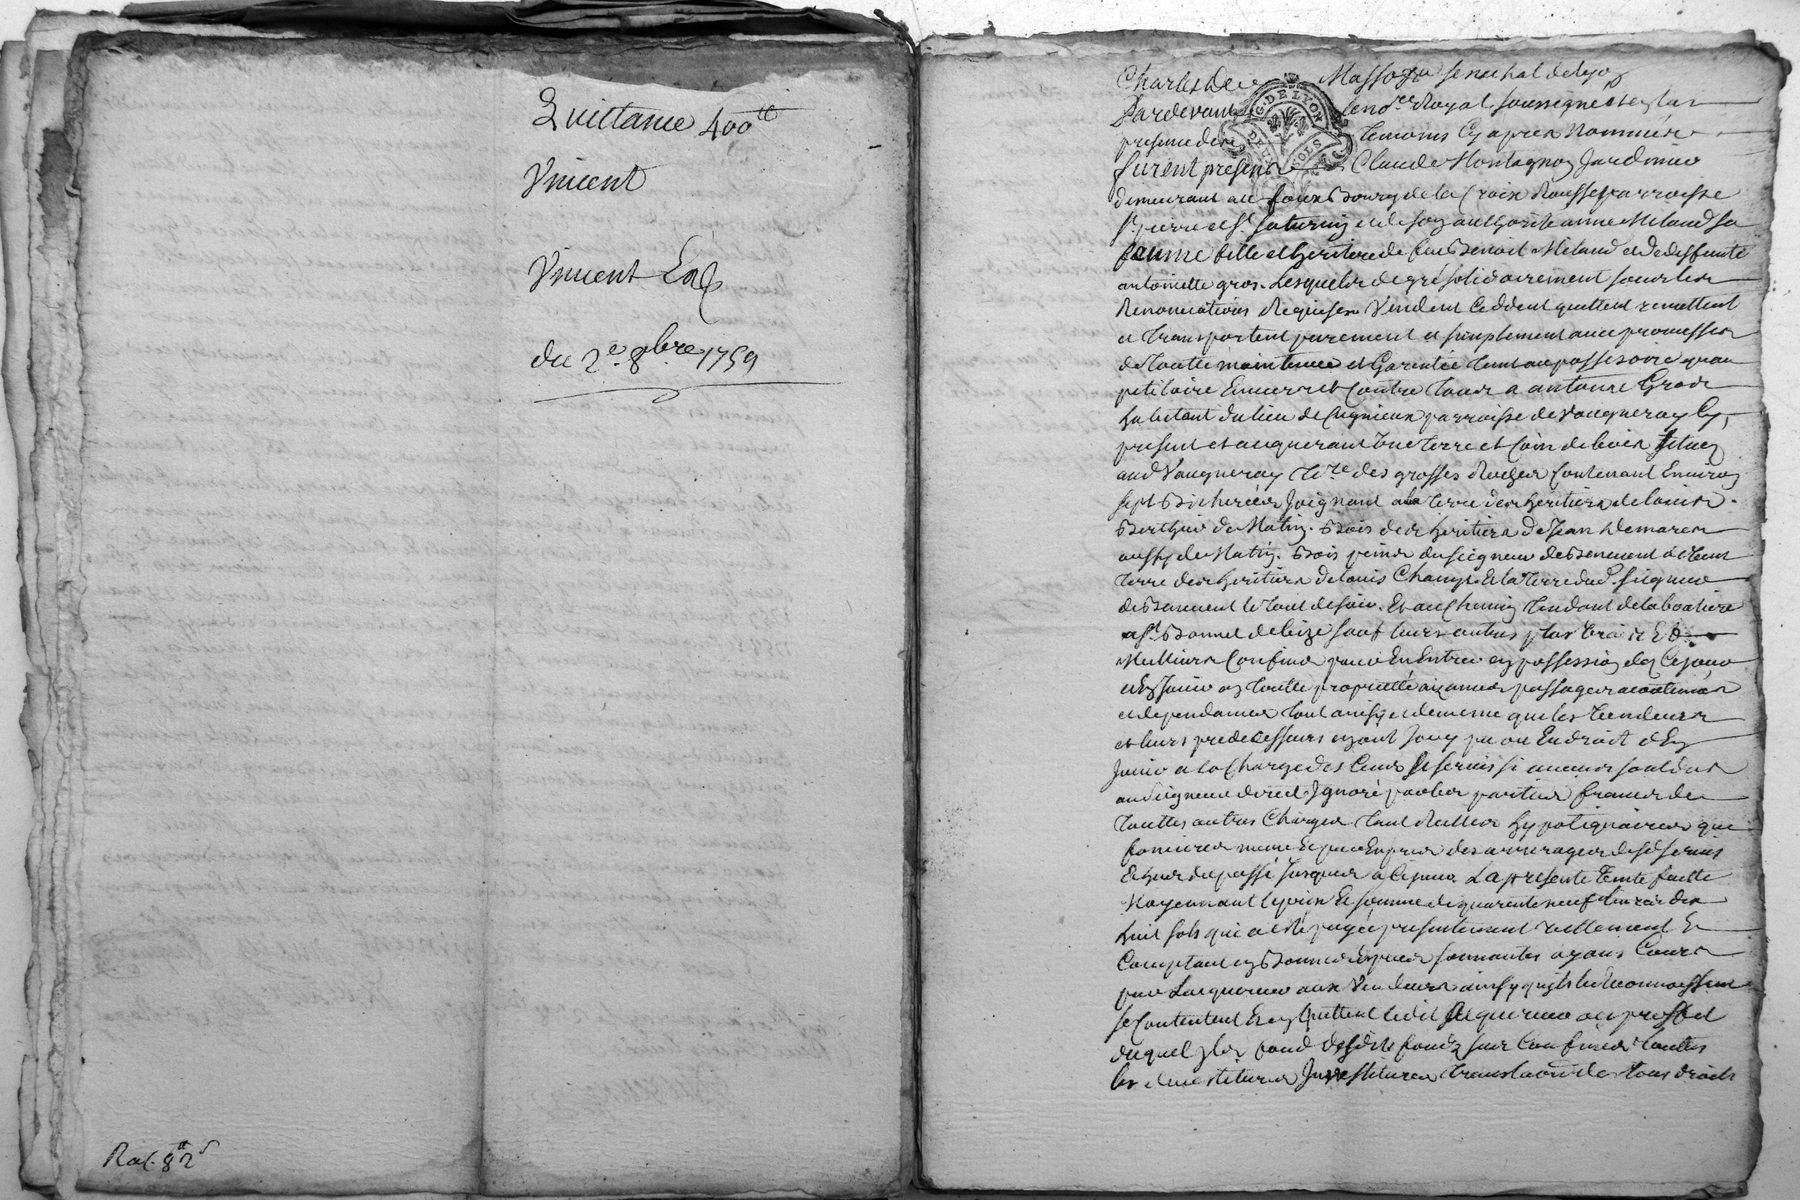 Quittance 400tt
Vincent
Vincent
du 2e 8bre 1759
Charles de Masso senechal de lyon
G. DE LYON
DEUX SOLS
Pardevant le nore Royal soussigné et en la
presence des temoins Cy apres Nommés
furent presents Claude Montagnon Jardinier
demeurant au faux Bourg de la Croix Rousse parroisse
St pierre et St saturnin et de son authorité anne Meland sa
femme fille et heritiere de feu Benoit Meland et de deffunte
antoinette gros. Lesquels de gré solidairement sous les
Renonciations Requises Vendent Ceddent quittent remettent
et transportent purement et simplement avec promesses
de toutte maintenue et Garentie tant au possessoire qu'au
petitoire Envers et Contre tous a antoine Gros
habitant du lieu de parroisse de Vaugneray Cy
present et acquerant Une terre et Coin de bois situés
aud Vaugneray tre des grosses Roches Contenant Environ
sept Bicherées Joignant a la terre des heritiers de louis
Berthier de Matin. Bois des heritiers de Jean Demares
aussy de Matin. Bois du seigneur de Benevent
terre des heritiers de louis Champ Et la terre dud. seigneur
de Benevent le tout de soir. Et au Chemin tendant de la
a St Bonnet de bize sauf leurs autres plus vrais Et
Meilleurs Confins pour En Entrer en possession des Ce jour
et En Jouir en toutte proprietté aizances passages accoutumés
et dependances tout ainsy et de meme que les Vendeurs
et leurs predecesseurs en ont Jouy pu ou En droit d'En
Jouir a la Charge des Cens et servis si aucuns sont dus
au seigneur direct Ignoré par les parties francs de
touttes autres Charges tant Reelles hypotequaires que
foncieres meme des arrerages desds servis
du passé Jusques a Ce jour La presente Vente faitte
Moyennant le prix Et somme de quarante neuf livres dix
huit sols qui a eté payée presentement reellement Et
Comptant en Bonnes especes sonnantes ayans Cours
par Lacquereur aux Vendeurs ainsy qu'ils le reconnoissent
se Contentent Et en quittent ledit acquereur au proffit
duquel
les investitures translation de tous droits